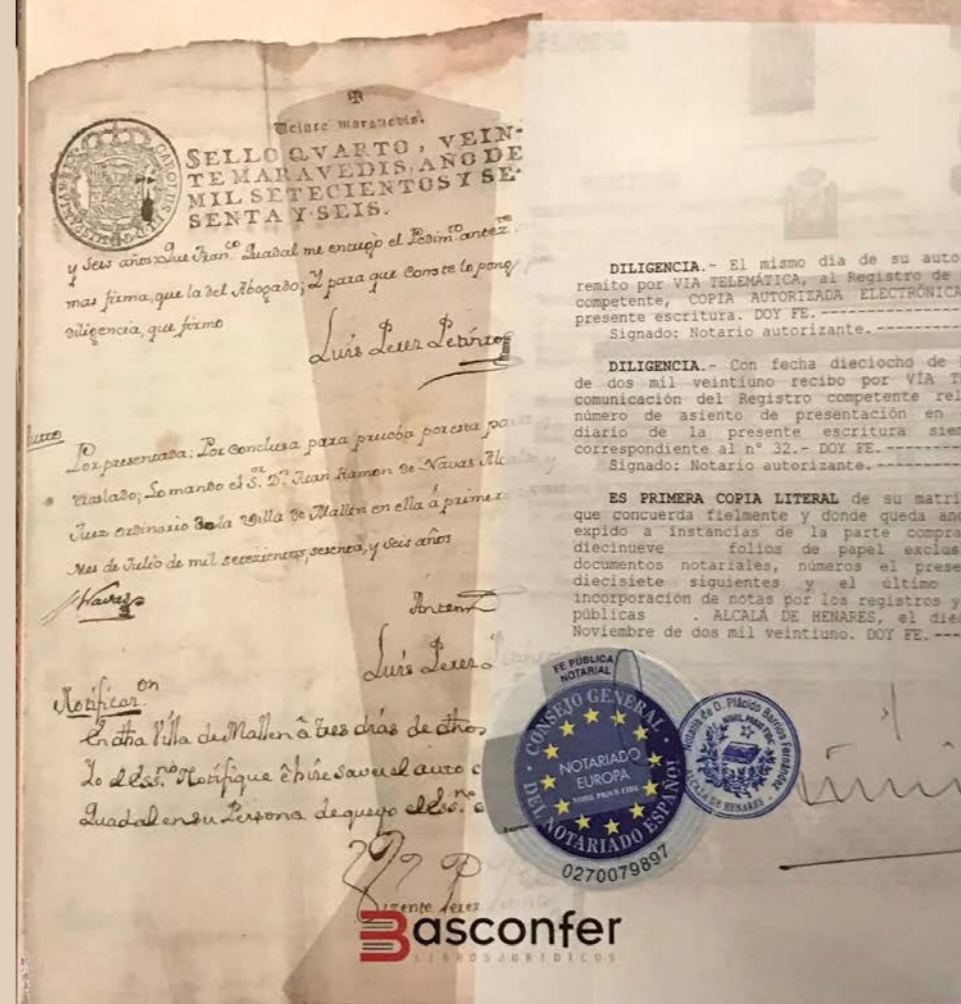 Veinte maravedis.
SELLO QVARTO, VEIN-
TE MARAVEDIS, AÑO DE
MIL SETECIENTOS Y SE-
SENTA Y SEIS.
y Seis años Que Fran.co Guadal me entregò el Pedim.to antez.te
mas firma, que la del Abogado; Y para que Conste lo pong
diligencia, que firmo
Luis Perez
Por presentada: Por Conclusa para prueba por esta par
traslado; Lo mando el S.or D.n Juan Ramon de Navas Alc
Juez ordinario de la Villa de Mallen en ella â primer
Mes de Julio de mil setezientos, sesenta, y Seis años
Navas
Antem
Luis Perez
Notificac.on
En dha Villa de Mallen â tres dias de dhos
Yo el ess.no Notifique ê hize saver el auto
Guadal en su Persona de que yo el ess.no
Vizente Perez
DILIGENCIA.- El mismo dia de su auto
remito por VIA TELEMÁTICA, al Registro de
competente, COPIA AUTORIZADA ELECTRÓNICA
presente escritura. DOY FE.------------
Signado: Notario autorizante.----------
DILIGENCIA.- Con fecha dieciocho de
de dos mil veintiuno recibo por VÍA T
comunicación del Registro competente rel
número de asiento de presentación en
diario de la presente escritura sien
correspondiente al nº 32.- DOY FE.--------
Signado: Notario autorizante.----------
ES PRIMERA COPIA LITERAL de su matri
que concuerda fielmente y donde queda ano
expido a instancias de la parte compra
diecinueve folios de papel exclus
documentos notariales, números el prese
diecisiete siguientes y el último
incorporación de notas por los registros y
públicas . ALCALÁ DE HENARES, el diec
Noviembre de dos mil veintiuno. DOY FE.----
FE PÚBLICA
NOTARIAL
CONSEJO GENERAL
DEL NOTARIADO ESPAÑOL
NOTARIADO
EUROPA
NIHIL PRIUS FIDE
0270079897
Notaría de D. Plácido Barrios Fernando
NIHIL PRIUS FIDE
ALCALÁ DE HENARES
Basconfer
LIBROS JURIDICOS